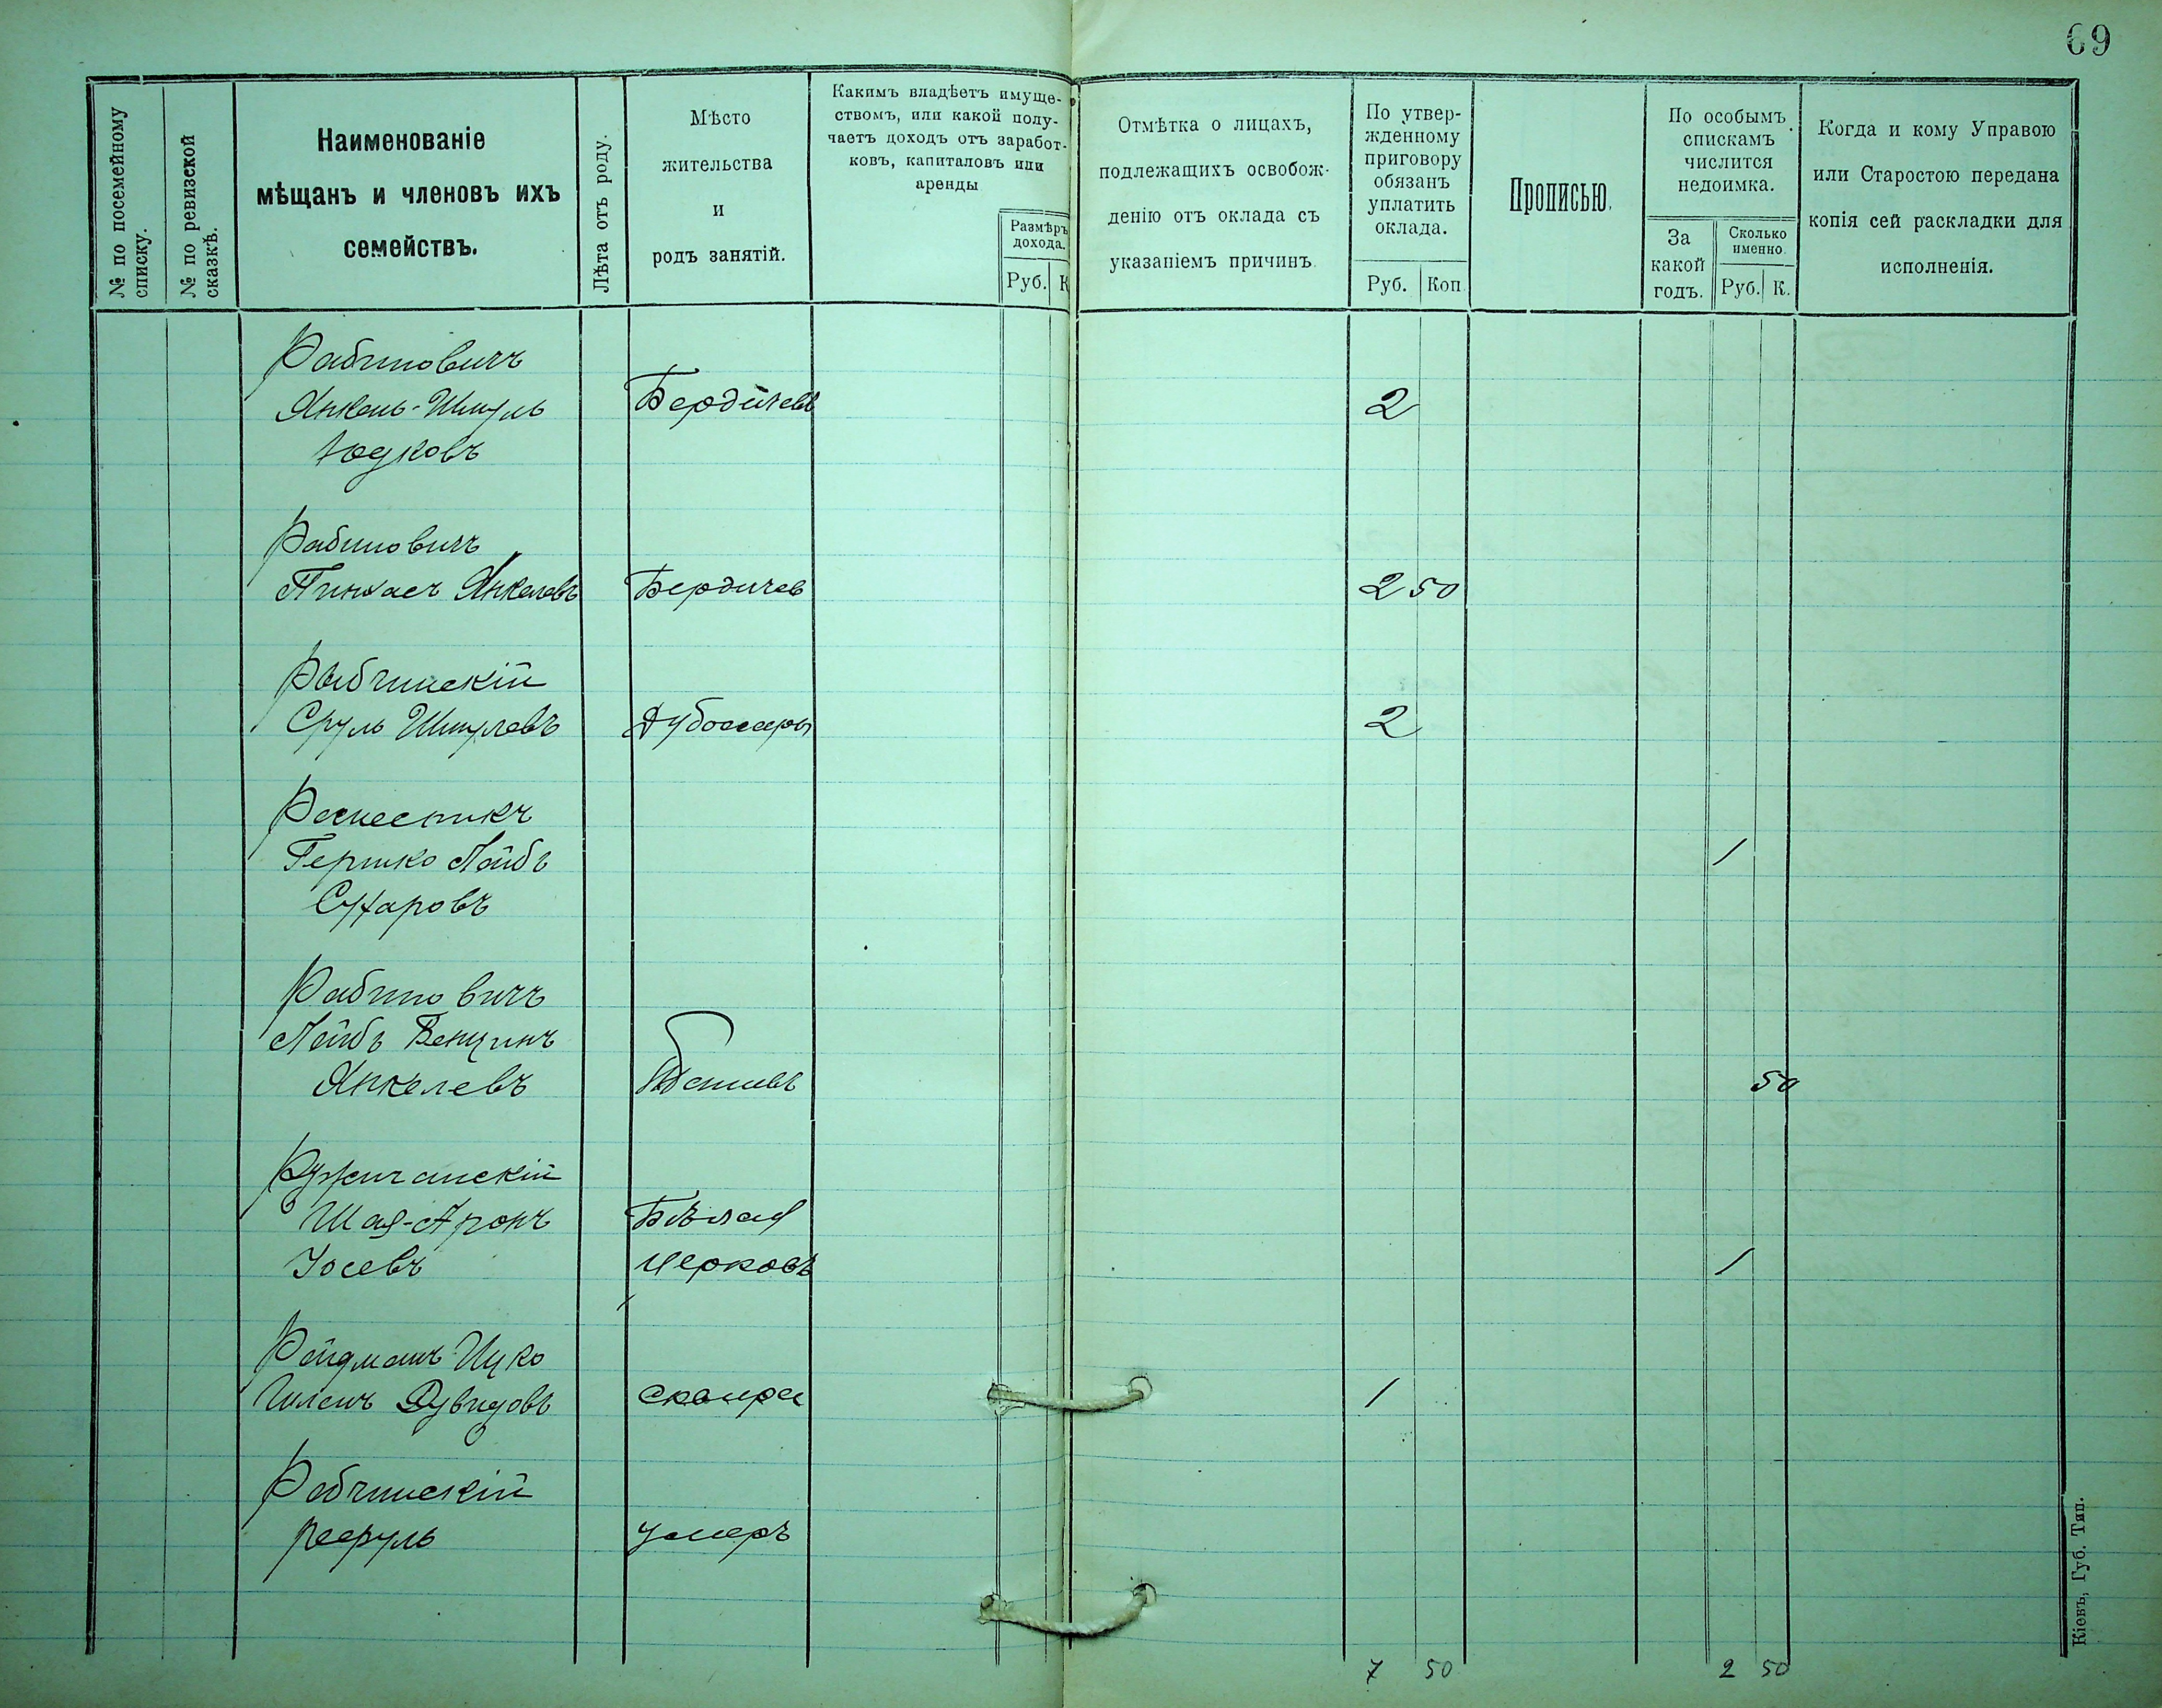 69
№ по посемейному
списку.
№ по ревизской
сказкѣ.
Наименованіе
мѣщанъ и членовъ ихъ
семействъ.
Лѣта отъ роду.
Мѣсто
жительства
и
родъ занятій.
Какимъ владѣетъ имуще-
ствомъ, или какой полу-
чаетъ доходъ отъ заработ-
ковъ, капиталовъ или
аренды
Размѣръ
дохода.
Руб. К
Отмѣтка о лицахъ,
подлежащихъ освобож-
денію отъ оклада съ
указаніемъ причинъ.
По утвер-
жденному
приговору
обязанъ
уплатить
оклада.
Руб. Коп.
Прописью.
По особымъ
спискамъ
числится
недоимка.
За
какой
годъ.
Сколько
именно.
Руб. К.
Когда и кому Управою
или Старостою передана
копія сей раскладки для
исполненія.
Рабиновичъ
Янкель-Шмуль Бердичевъ 2
Юдковъ
Рабиновичъ
Пинхасъ Янкелевъ Бердичев 2 50
Рабчинскій
Сруль Шмулевъ Дубоссары 2
Гершко Лейбъ 1
Сухаровъ
Рабиновичъ
Лейбъ Бенціинъ
Янкелевъ 50
Ружичанскій
Шая-Аронъ Бѣлая
Іосевъ Церковь 1
Ройдманъ Ицко
Шлемъ Дувидовъ Сквира 1
Рабчинскій
Умеръ
7 50 2 50
Кіевъ, Губ. Тип.